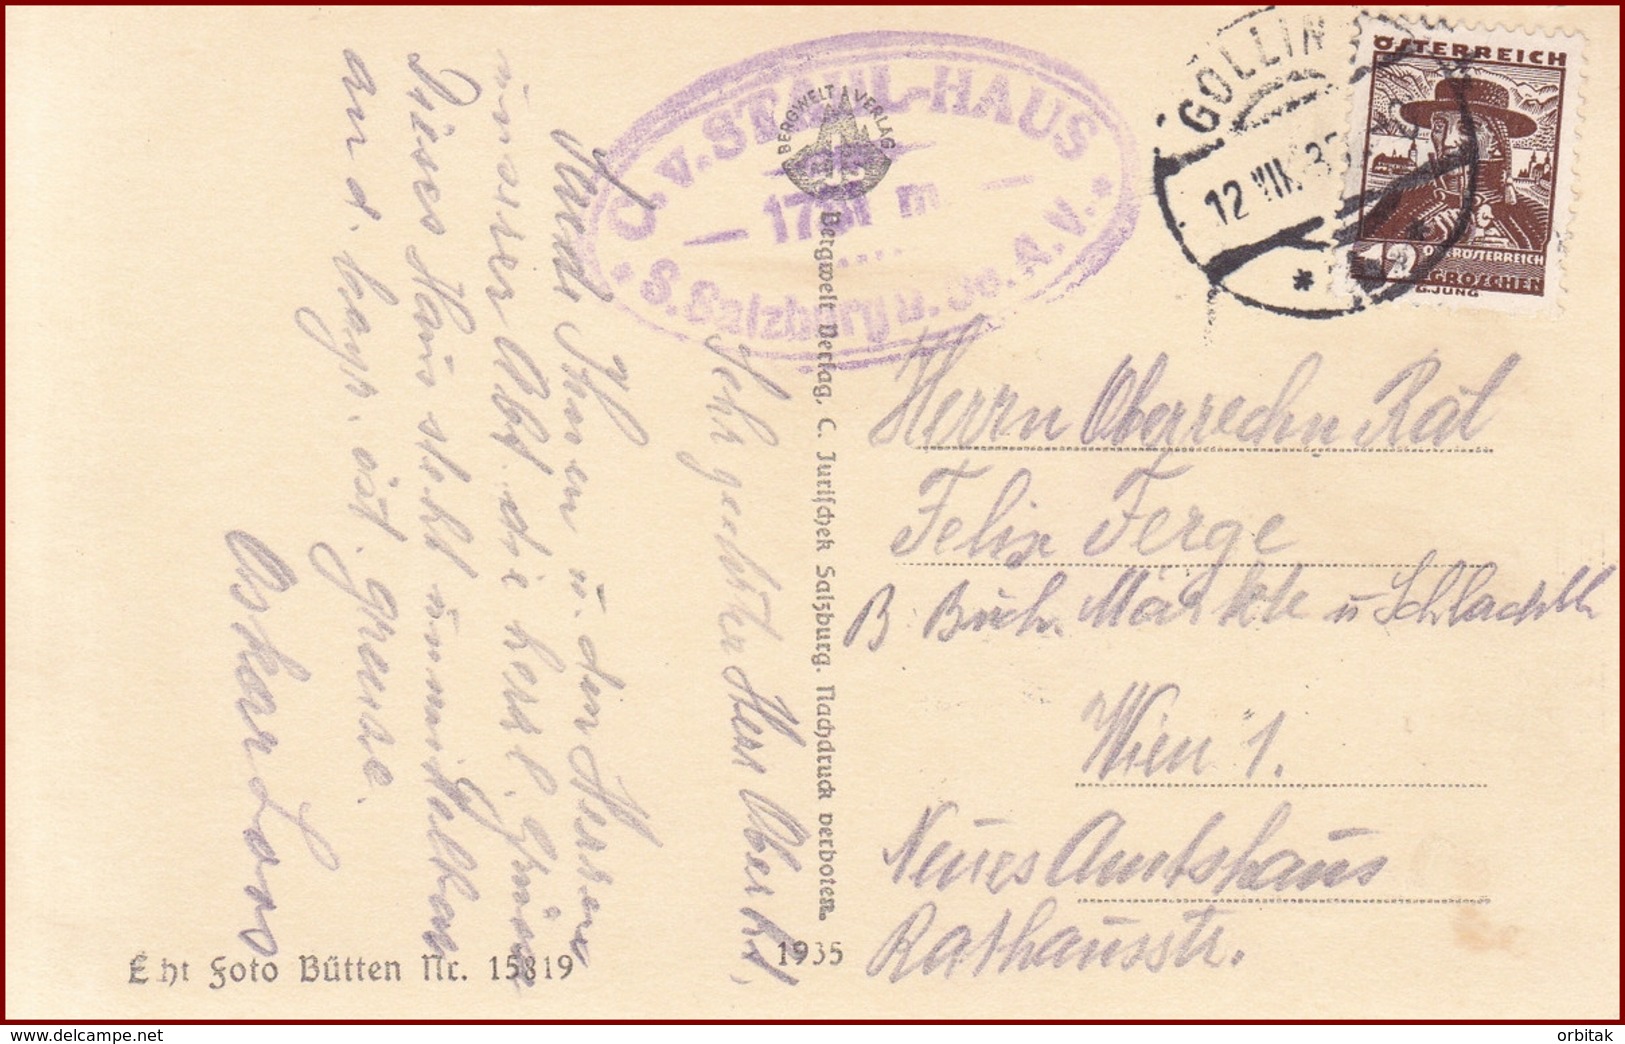 C. v. STAHL-HAUS
— 1731 m —
* S. Salzburg d. Oe. A. V. *
BERGWELT VERLAG
GOLLING
12 VIII 35
ÖSTERREICH
OBERÖSTERREICH
GROSCHEN
G. JUNG
Sehr geehrter Herr Oberkt.
Sende Ihnen u. den Herren
unserer Abt. die herzl. Grüsse
Dieses Haus steht unmittelbar
an d. bayr. öst. Grenze.
Oskar Loos
Bergwelt Verlag, C. Jurischek Salzburg. Nachdruck verboten.
Herrn Oberrechn Rat
Felix Ferge
B Buch. Märkte u Schlachth
Wien 1.
Neues Amtshaus
Rathausstr.
Echt Foto Bütten Nr. 15819
1935
www.delcampe.net
orbitak